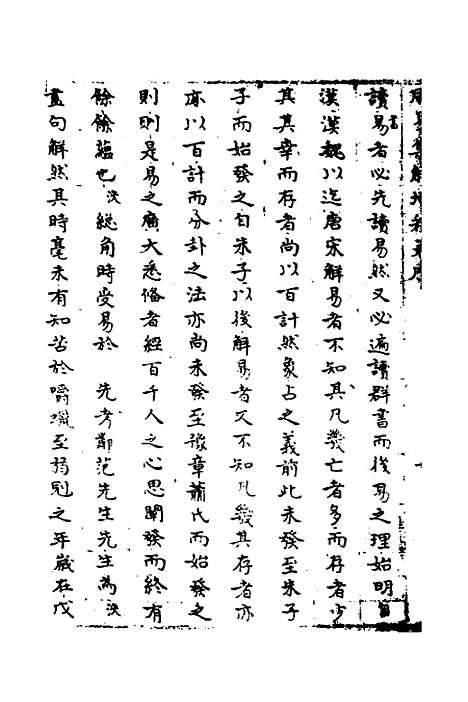 讀易者必先讀易然又必遍讀群書而後易之理始明自
漢漢魏以迄唐宋解易者不知其凡幾亡者多而存者少
其其幸而存者尚以百計然象占之義前此未發至朱子
子而始發之自朱子以後解易者又不知凡幾其存者亦
亦以百計而分卦之法亦尚未發至豫章蕭氏而始發之
則則是易之廣大悉備者經百千人之心思闡發而終有
餘餘蘊也汝総角時受易於 先考鄒范先生先生為汝
畫句解然其時毫未有知苦於嚼蠟至弱冠之年歲在戊